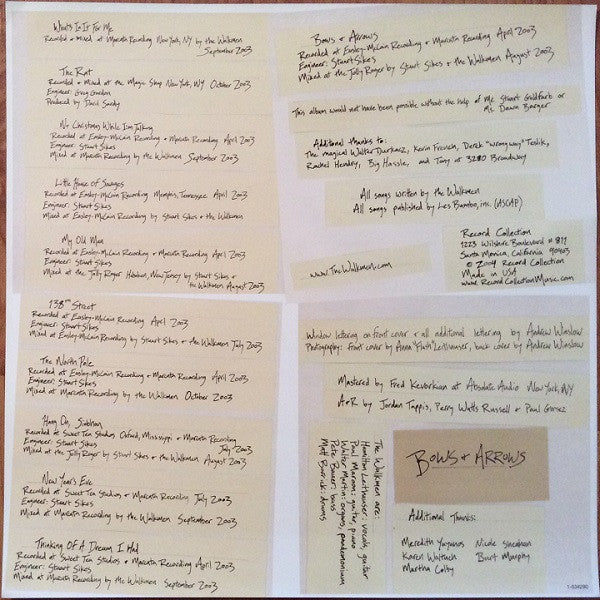 What's In It For Me
Recorded + Mixed at Marcata Recording New York, NY by the Walkmen
September 2003
The Rat
Recorded + Mixed at the Magic Shop New York, NY October 2003
Engineer: Greg Gordon
Produced by Dave Sardy
No Christmas While I'm Talking
Recorded at Easley-McCain Recording + Marcata Recording April 2003
Engineer: Stuart Sikes
Mixed at Marcata Recording by the Walkmen September 2003
Little House of Savages
Recorded at Easley-McCain Recording Memphis, Tennessee April 2003
Engineer: Stuart Sikes
Mixed at Easley-McCain Recording by Stuart Sikes + the Walkmen
My Old Man
Recorded at Easley-McCain Recording + Marcata Recording April 2003
Engineer: Stuart Sikes
Mixed at the Jolly Roger Hoboken, New Jersey by Stuart Sikes +
the Walkmen August 2003
138th Street
Recorded at Easley-McCain Recording April 2003
Engineer: Stuart Sikes
Mixed at Easley-McCain Recording by Stuart Sikes and the Walkmen July 2003
The North Pole
Recorded at Easley-McCain Recording + Marcata Recording April 2003
Engineer: Stuart Sikes
Mixed at Marcata Recording by the Walkmen October 2003
Hang On, Siobhan
Recorded at Sweet Tea Studios Oxford, Mississippi + Marcata Recording
July 2003
Engineer: Stuart Sikes
Mixed at the Jolly Roger by Stuart Sikes + the Walkmen August 2003
New Year's Eve
Recorded at Sweet Tea Studios + Marcata Recording July 2003
Engineer: Stuart Sikes
Mixed at Marcata Recording by the Walkmen September 2003
Thinking Of A Dream I Had
Recorded at Sweet Tea Studios + Marcata Recording April 2003
Engineer: Stuart Sikes
Mixed at Marcata Recording by the Walkmen September 2003
Bows + Arrows
Recorded at Easley-McCain Recording + Marcata Recording April 2003
Engineer: Stuart Sikes
Mixed at the Jolly Roger by Stuart Sikes + the Walkmen August 2003
This album would not have been possible without the help of Mr. Stuart Goldfarb or
Ms. Dawn Barger
Additional thanks to:
The magical Walter Durkacz, Kevin French, Derek "wrongway" Teslik,
Rachel Hendry, Big Hassle, and Tony at 3280 Broadway
All songs written by the Walkmen
All songs published by Les Bambo, inc. (ASCAP)
www.TheWalkmen.com
Record Collection
1223 Wilshire Boulevard # 811
Santa Monica, California 90403
© 2004 Record Collection
Made in USA
www.RecordCollectionMusic.com
Window lettering on front cover + all additional lettering by Andrew Winslow
Photography: front cover by Anna "Flash" Leithauser, back cover by Andrew Winslow
Mastered by Fred Kevorkian at Absolute Audio New York, NY
A+R by Jordan Tappis, Perry Watts Russell + Paul Gomez
The Walkmen are:
Hamilton Leithauser: vocals, guitar
Paul Maroon: guitar, piano
Walter Martin: organs, pandemonium
Pete Bauer: bass
Matt Barrick: drums
Bows + Arrows
Additional Thanks:
Meredith Nicole Sheahan
Karen Burt Murphy
Martha Colby
1-634290